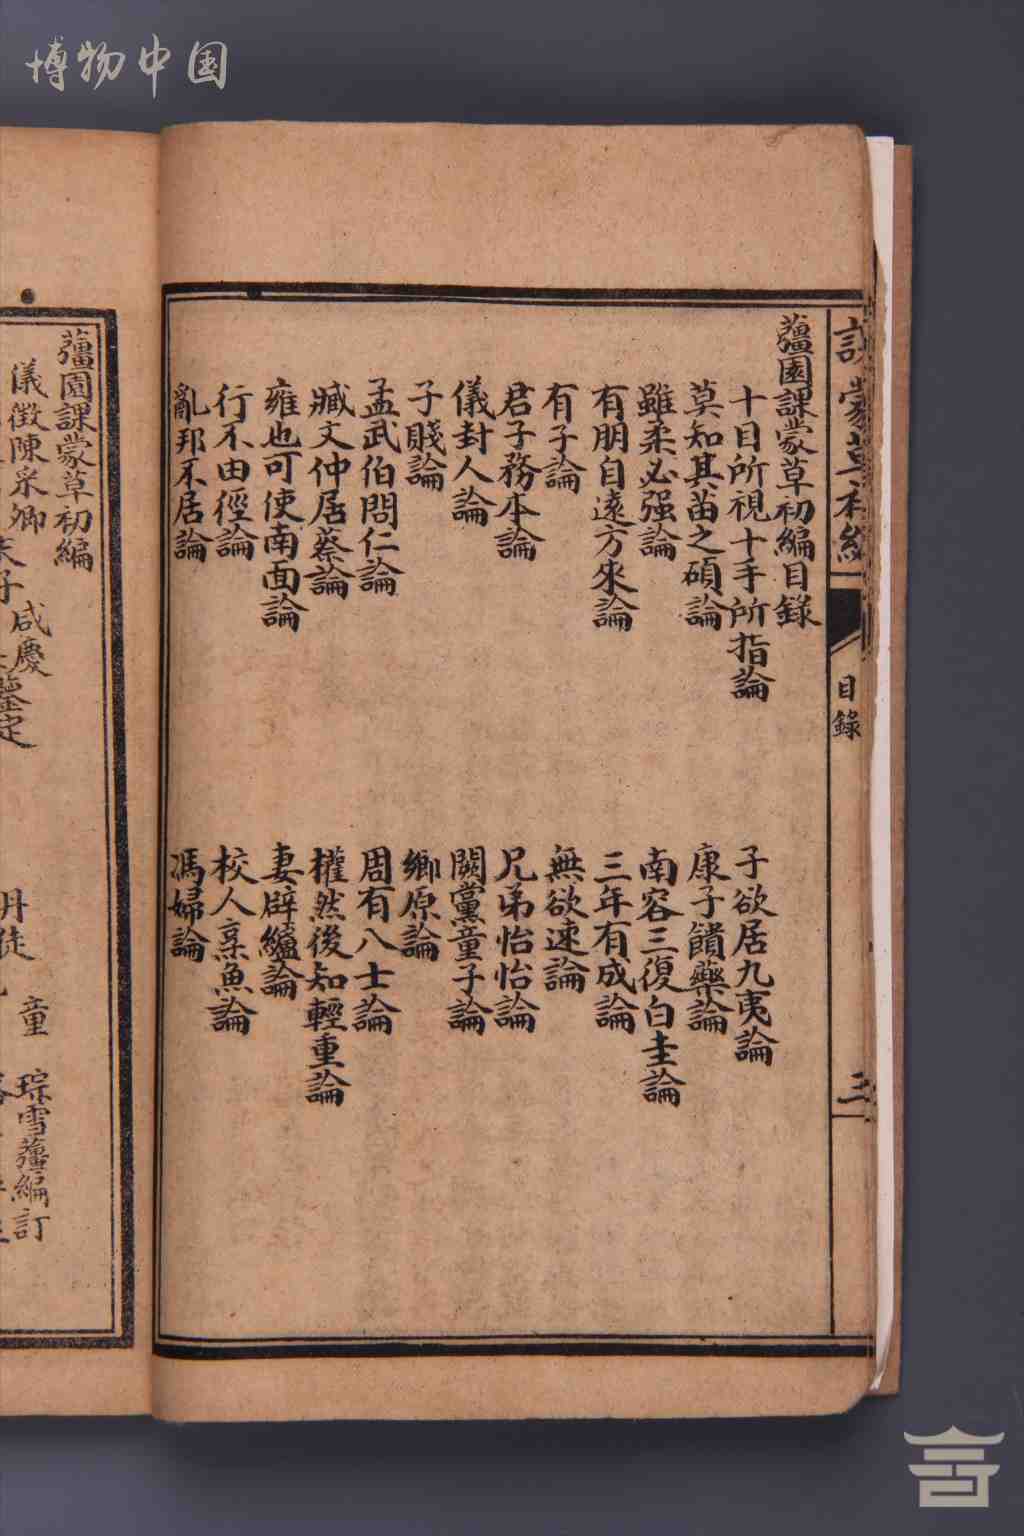 博物中国
課蒙草初編
目錄
三
薑園課蒙草初編目錄
十目所視十手所指論
子欲居九夷論
莫知其苗之碩論
康子饋藥論
雖柔必强論
南容三復白圭論
有朋自遠方來論
三年有成論
有子論
無欲速論
君子務本論
兄弟怡怡論
儀封人論
闕黨童子論
子賤論
鄉原論
孟武伯問仁論
周有八士論
臧文仲居蔡論
權然後知輕重論
雍也可使南面論
妻辟纑論
行不由徑論
校人烹魚論
亂邦不居論
馮婦論
薑園課蒙草初編
咸慶
童琮雪薑編訂
儀徵陳采卿夫子鑒定
丹徒